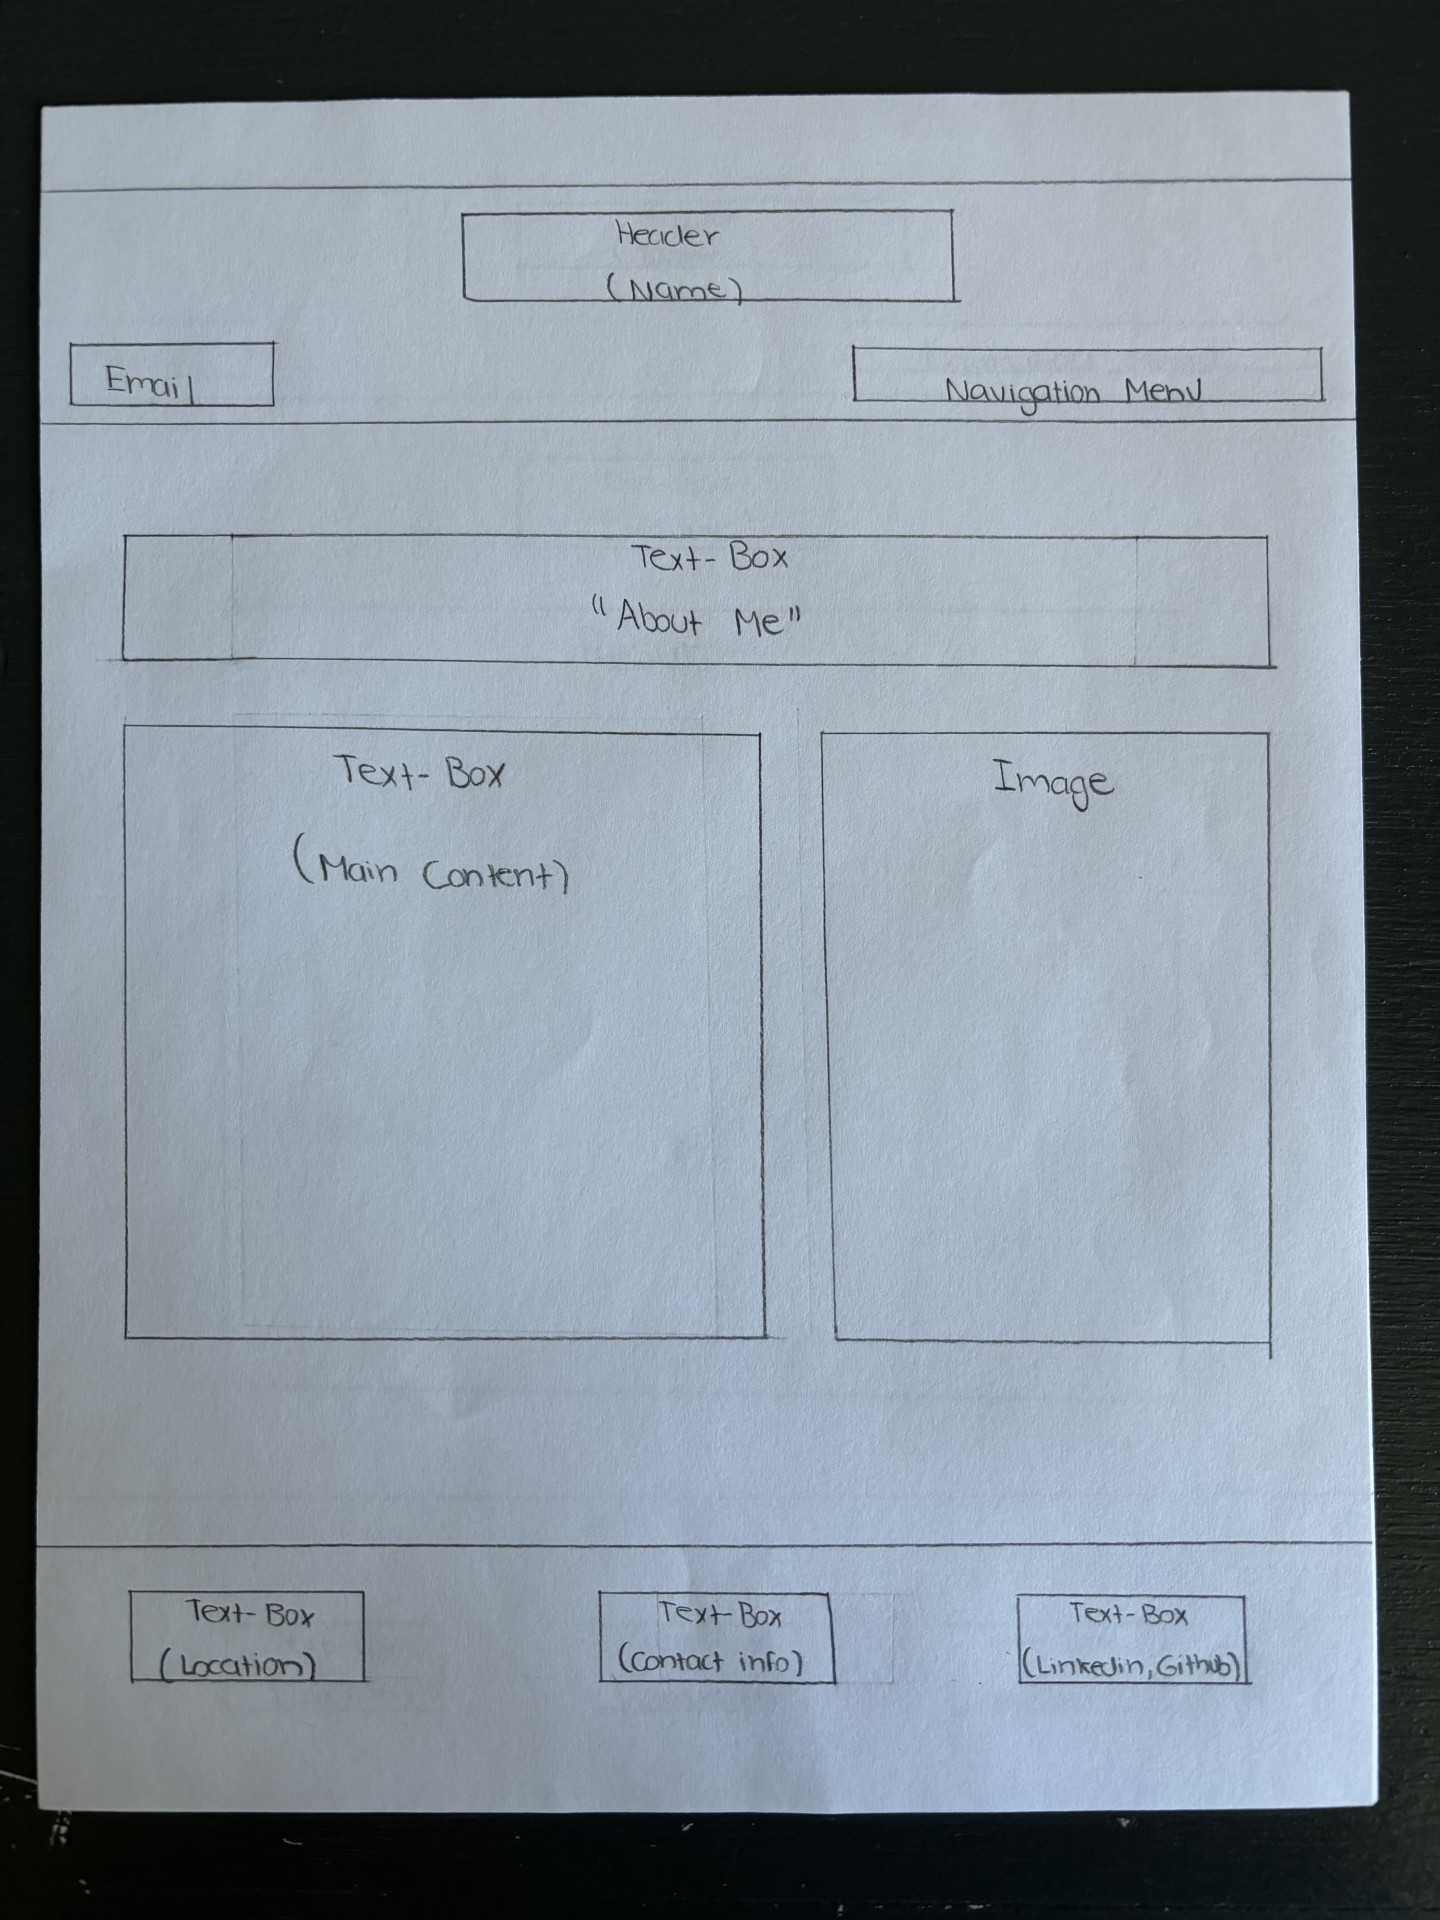 Header
(Name)
Email
Navigation Menu
Text-Box
"About Me"
Text-Box
(Main Content)
Image
Text-Box
(Location)
Text-Box
(Contact info)
Text-Box
(Linkedin, Github)